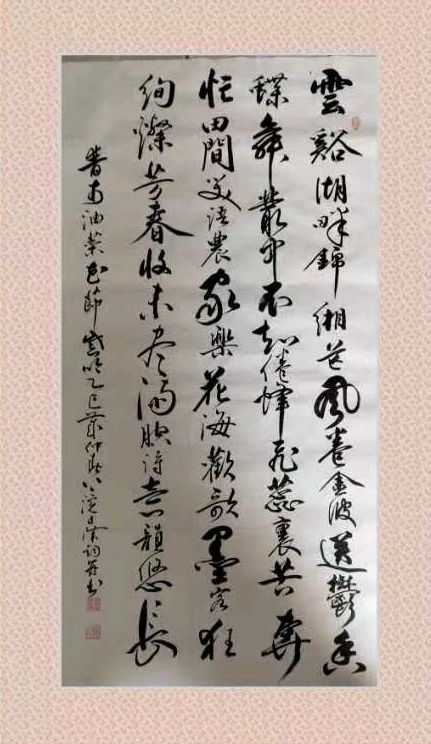 雲谿湖畔錦緗芒風卷金波送鬱香
蝶舞叢中不知倦蜂飛蕊裏苦奔
忙田間笑語農家樂花海歡歌墨客狂
絢爛芳春收未盡滿腔詩意韻悠長
油菜花節感吟乙巳仲春詞并書